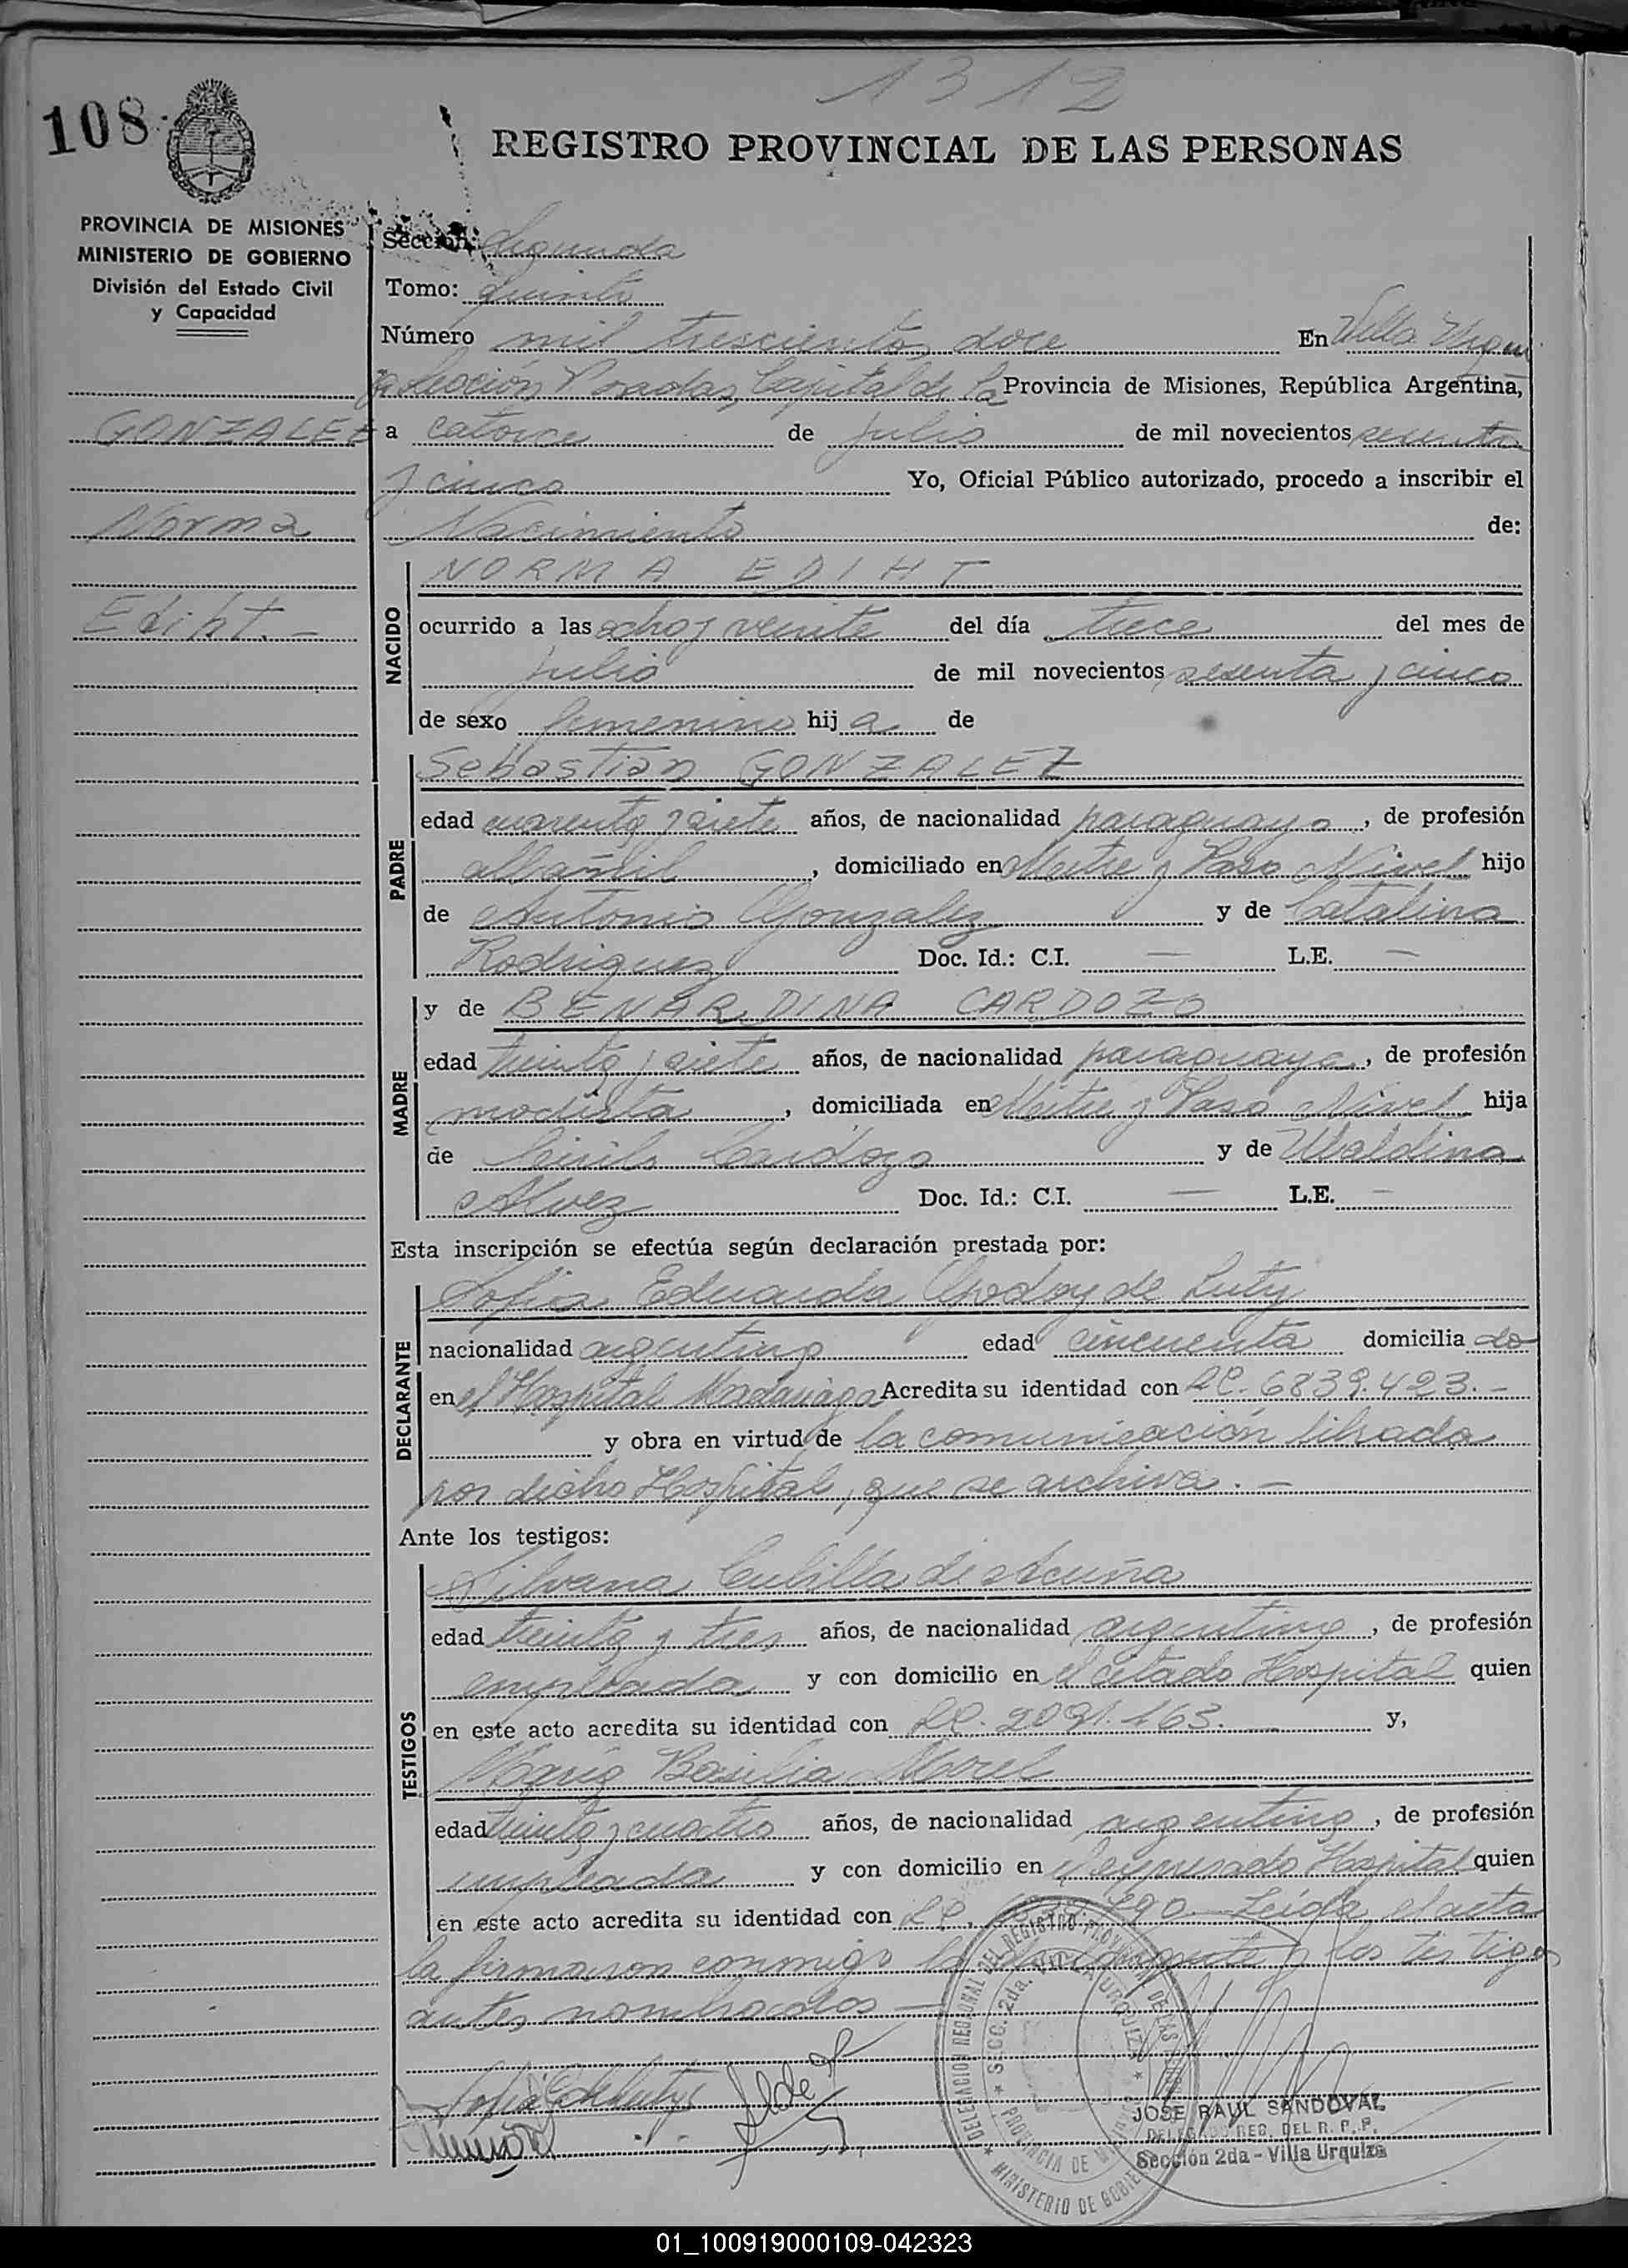 1312
108
REGISTRO PROVINCIAL DE LAS PERSONAS
PROVINCIA DE MISIONES
MINISTERIO DE GOBIERNO
División del Estado Civil
y Capacidad
GONZALEZ
Norma
Ediht.-
Sección: Segunda
Tomo: Quinto
Número mil trescientos doce En Villa Urqui
za Sección Posadas, Capital de la Provincia de Misiones, República Argentina,
a catorce de julio de mil novecientos sesenta
y cinco Yo, Oficial Público autorizado, procedo a inscribir el
Nacimiento de:
NACIDO
NORMA EDIHT
ocurrido a las ocho y veinte del día trece del mes de
julio de mil novecientos sesenta y cinco
de sexo femenino hija de
PADRE
Sebastian GONZALEZ
edad cuarenta y siete años, de nacionalidad paraguayo, de profesión
albañil, domiciliado en Mitre y Paso Nivel hijo
de Antonio Gonzalez y de Catalina
Rodriguez Doc. Id.: C.I. — L.E. —
MADRE
y de BENARDINA CARDOZO
edad treinta y siete años, de nacionalidad paraguaya, de profesión
modista, domiciliada en Mitre y Paso Nivel hija
de Cirilo Cardozo y de Ubaldina
Alvez Doc. Id.: C.I. — L.E. —
Esta inscripción se efectúa según declaración prestada por:
DECLARANTE
Sofia Eduarda Godoy de Luty
nacionalidad argentina edad cincuenta domiciliado
en el Hospital Madariaga Acredita su identidad con LC. 6839.423.-
y obra en virtud de la comunicación librada
por dicho Hospital, que se archiva.-
Ante los testigos:
TESTIGOS
Silvana Cubilla de Acuña
edad treinta y tres años, de nacionalidad argentina, de profesión
empleada y con domicilio en el citado Hospital quien
en este acto acredita su identidad con LC. 2091.163. y,
María Basilia Morel
edad treinta y cuatro años, de nacionalidad argentina, de profesión
empleada y con domicilio en el expresado Hospital quien
en este acto acredita su identidad con LC. 290.- Leída el acta
la firmaron conmigo la declarante y los testigos
antes nombrados —
DELEGACION REGIONAL DEL REGISTRO PROVINCIAL DE LAS
SECC. 2da. VILLA URQUIZA
PROVINCIA DE MISIONES
MINISTERIO DE GOBIERNO
JOSE RAUL SANDOVAL
DELEGADO REG. DEL R. P. P.
Sección 2da - Villa Urquiza
01_100919000109-042323